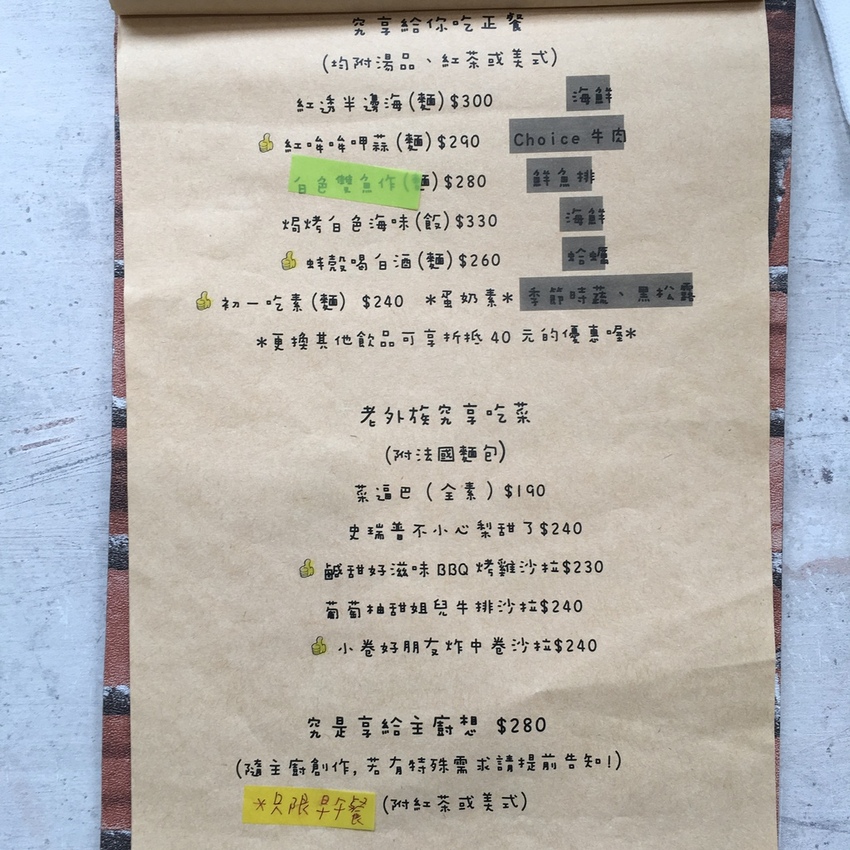 究享給你吃正餐
(均附湯品、紅茶或美式)
紅透半邊海(麵)$300 海鮮
紅哞哞呷蒜(麵)$290 Choice 牛肉
白色雙魚作(麵)$280 鮮魚排
焗烤白色海味(飯)$330 海鮮
蚌殼喝白酒(麵)$260 蛤蠣
初一吃素(麵) $240 *蛋奶素* 季節時蔬、黑松露
*更換其他飲品可享折抵 40 元的優惠喔*
老外族究享吃菜
(附法國麵包)
菜逼巴 ( 全素 ) $190
史瑞普不小心梨甜了$240
鹹甜好滋味 BBQ 烤雞沙拉$230
葡萄柚甜姐兒牛排沙拉$240
小卷好朋友炸中卷沙拉$240
究是享給主廚想 $280
(隨主廚創作,若有特殊需求請提前告知!)
*只限早午餐 (附紅茶或美式)